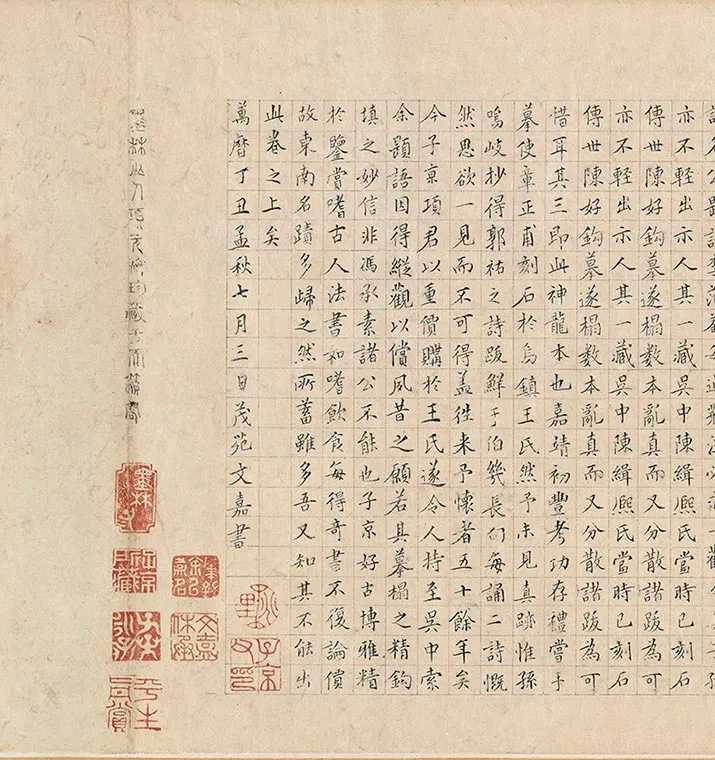 亦不輕出示人其一藏吳中陳緝熙氏當時已刻石
傳世陳好鈎摹遂搨數本亂真而又分散諸跋為可
亦不輕出示人其一藏吳中陳緝熙氏當時已刻石
傳世陳好鈎摹遂搨數本亂真而又分散諸跋為可
惜耳其三即此神龍本也嘉靖初豐考功存禮嘗手
摹使章正甫刻石於烏鎮王氏然予未見真跡惟孫
鳴岐抄得郭祐之詩跋鮮于伯幾長句每誦二詩慨
然思欲一見而不可得蓋往来予懷者五十餘年矣
今子京項君以重價購於王氏遂令人持至吳中索
余題語因得縱觀以償夙昔之願若其摹搨之精鈎
填之妙信非馮承素諸公不能也子京好古博雅精
於鑒賞嗜古人法書如嗜飲食每得奇書不復論價
故東南名蹟多歸之然所蓄雖多吾又知其不能出
此卷之上矣
萬曆丁丑孟秋七月三日茂苑文嘉書
子京父印
文嘉休承
墨林山人
平生真賞